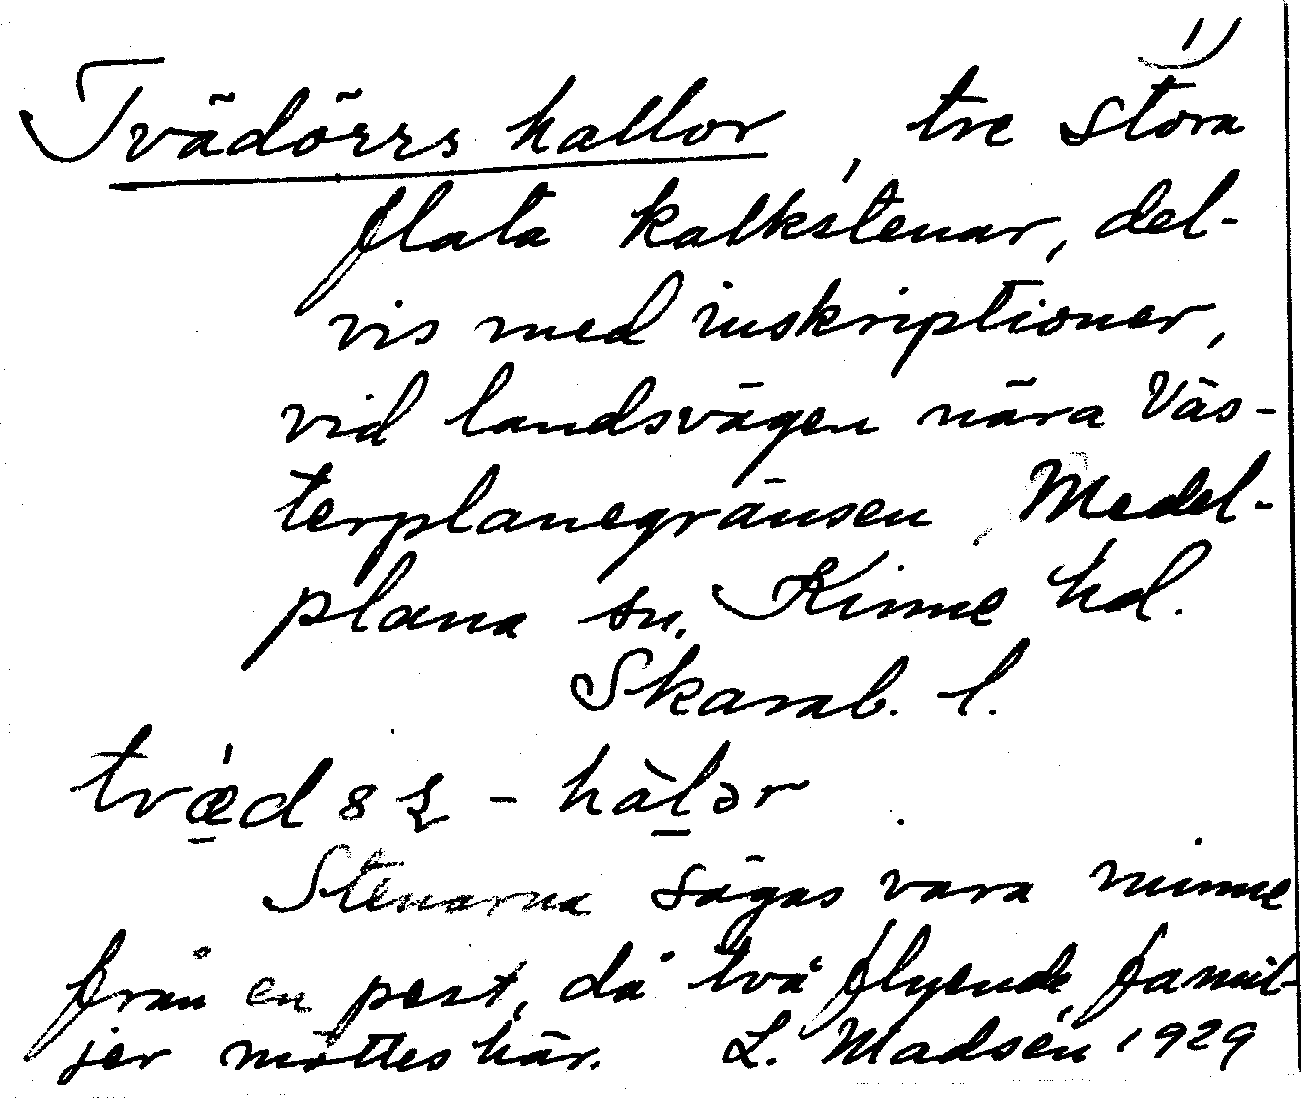 11)
Tvädörrs hallor, tre stora
flata kalkstenar, del-
vis med inskriptioner,
vid landsvägen nära Väs-
terplanegränsen, Medel-
plana sn, Kinne hd.
Skarab. l.
Stenarna sägas vara minne
från en pest, då två flyende famil-
jer möttes här. L. Madsén 1929